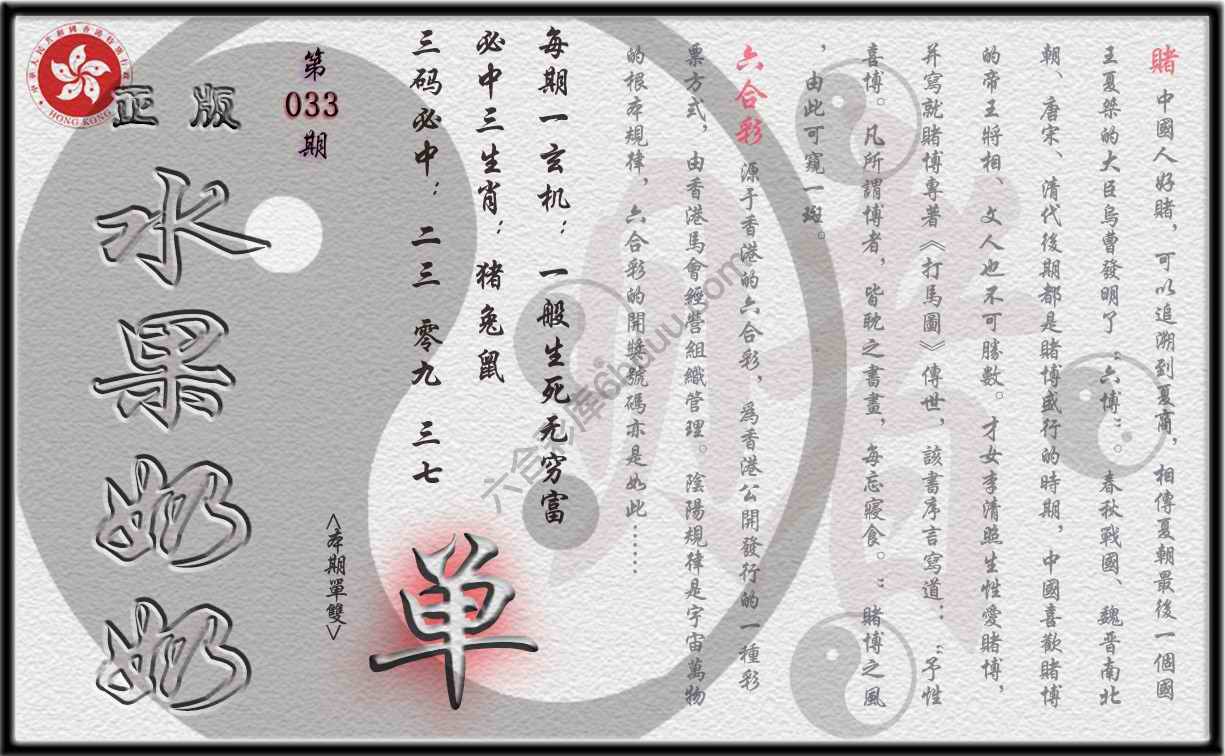 賭 中國人好賭，可以追溯到夏商，相傳夏朝最後一個國
王夏桀的大臣烏曹發明了“六博”。春秋戰國、魏晉南北
朝、唐宋、清代後期都是賭博盛行的時期，中國喜歡賭博
的帝王將相、文人也不可勝數。才女李清照生性愛賭博，
并寫就賭博專著《打馬圖》傳世，該書序言寫道：“予性
喜博。凡所謂博者，皆耽之書畫，每忘寢食。”賭博之風
，由此可窺一斑。
六合彩 源于香港的六合彩，為香港公開發行的一種彩
票方式，由香港馬會經營組織管理。陰陽規律是宇宙萬物
的根本規律，六合彩的開獎號碼亦是如此……
每期一玄机：一般生死无穷富
必中三生肖：猪兔鼠
三码必中：二三 零九 三七
第
033
期
<本期單雙>
单
正版
水果奶奶
中華人民共和國香港特別行政區
HONG KONG
六合彩库6huuu.com